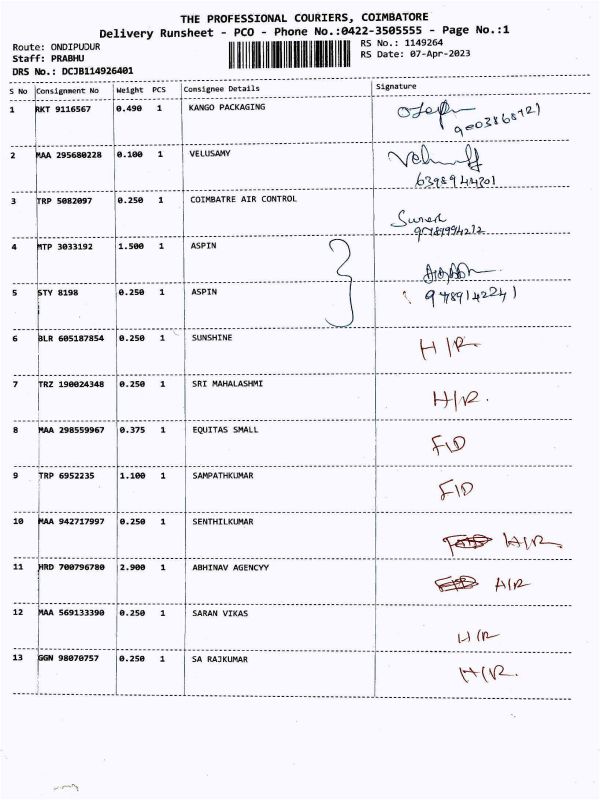 THE PROFESSIONAL COURIERS, COIMBATORE
Delivery Runsheet - PCO - Phone No.:0422-3505555 - Page No.:1
Route: ONDIPUDUR RS No.: 1149264
Staff: PRABHU RS Date: 07-Apr-2023
DRS No.: DCJB114926401
S No Consignment No Weight PCS Consignee Details Signature
1 RKT 9116567 0.490 1 KANGO PACKAGING
2 MAA 295680228 0.100 1 VELUSAMY
6398944301
3 TRP 5082097 0.250 1 COIMBATRE AIR CONTROL
4 MTP 3033192 1.500 1 ASPIN
5 STY 8198 0.250 1 ASPIN
6 BLR 605187854 0.250 1 SUNSHINE H/R
7 TRZ 190024348 0.250 1 SRI MAHALASHMI H/R.
8 MAA 298559967 0.375 1 EQUITAS SMALL FID
9 TRP 6952235 1.100 1 SAMPATHKUMAR FID
10 MAA 942717997 0.250 1 SENTHILKUMAR H/R
11 HRD 700796780 2.900 1 ABHINAV AGENCYY H/R
12 MAA 569133390 0.250 1 SARAN VIKAS H/R
13 GGN 98070757 0.250 1 SA RAJKUMAR H/R.